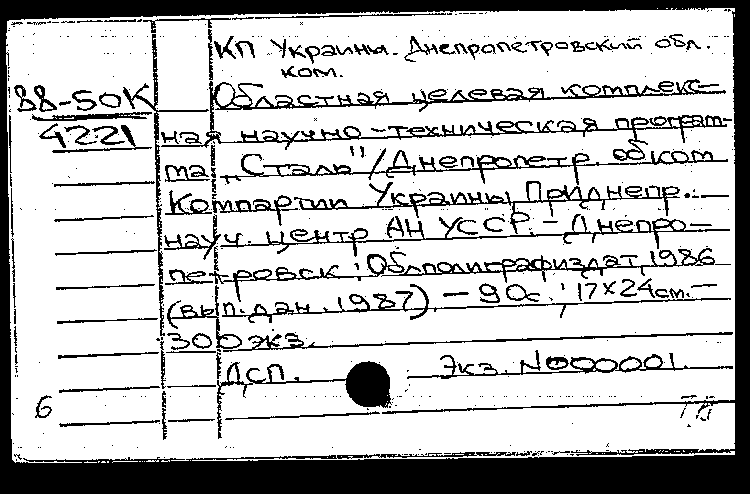 КП Украины. Днепропетровский обл.
ком.
88-50К Областная целевая комплекс-
4221 ная научно-техническая програм-
ма „Сталь"/Днепропетр. обком
Компартии Украины, Приднепр.
науч. центр АН УССР. - Днепро-
петровск: Облполиграфиздат, 1986
(вып. дан. 1987). - 90с.; 17×24см. -
300экз.
ДСП. Экз. N000001.
6